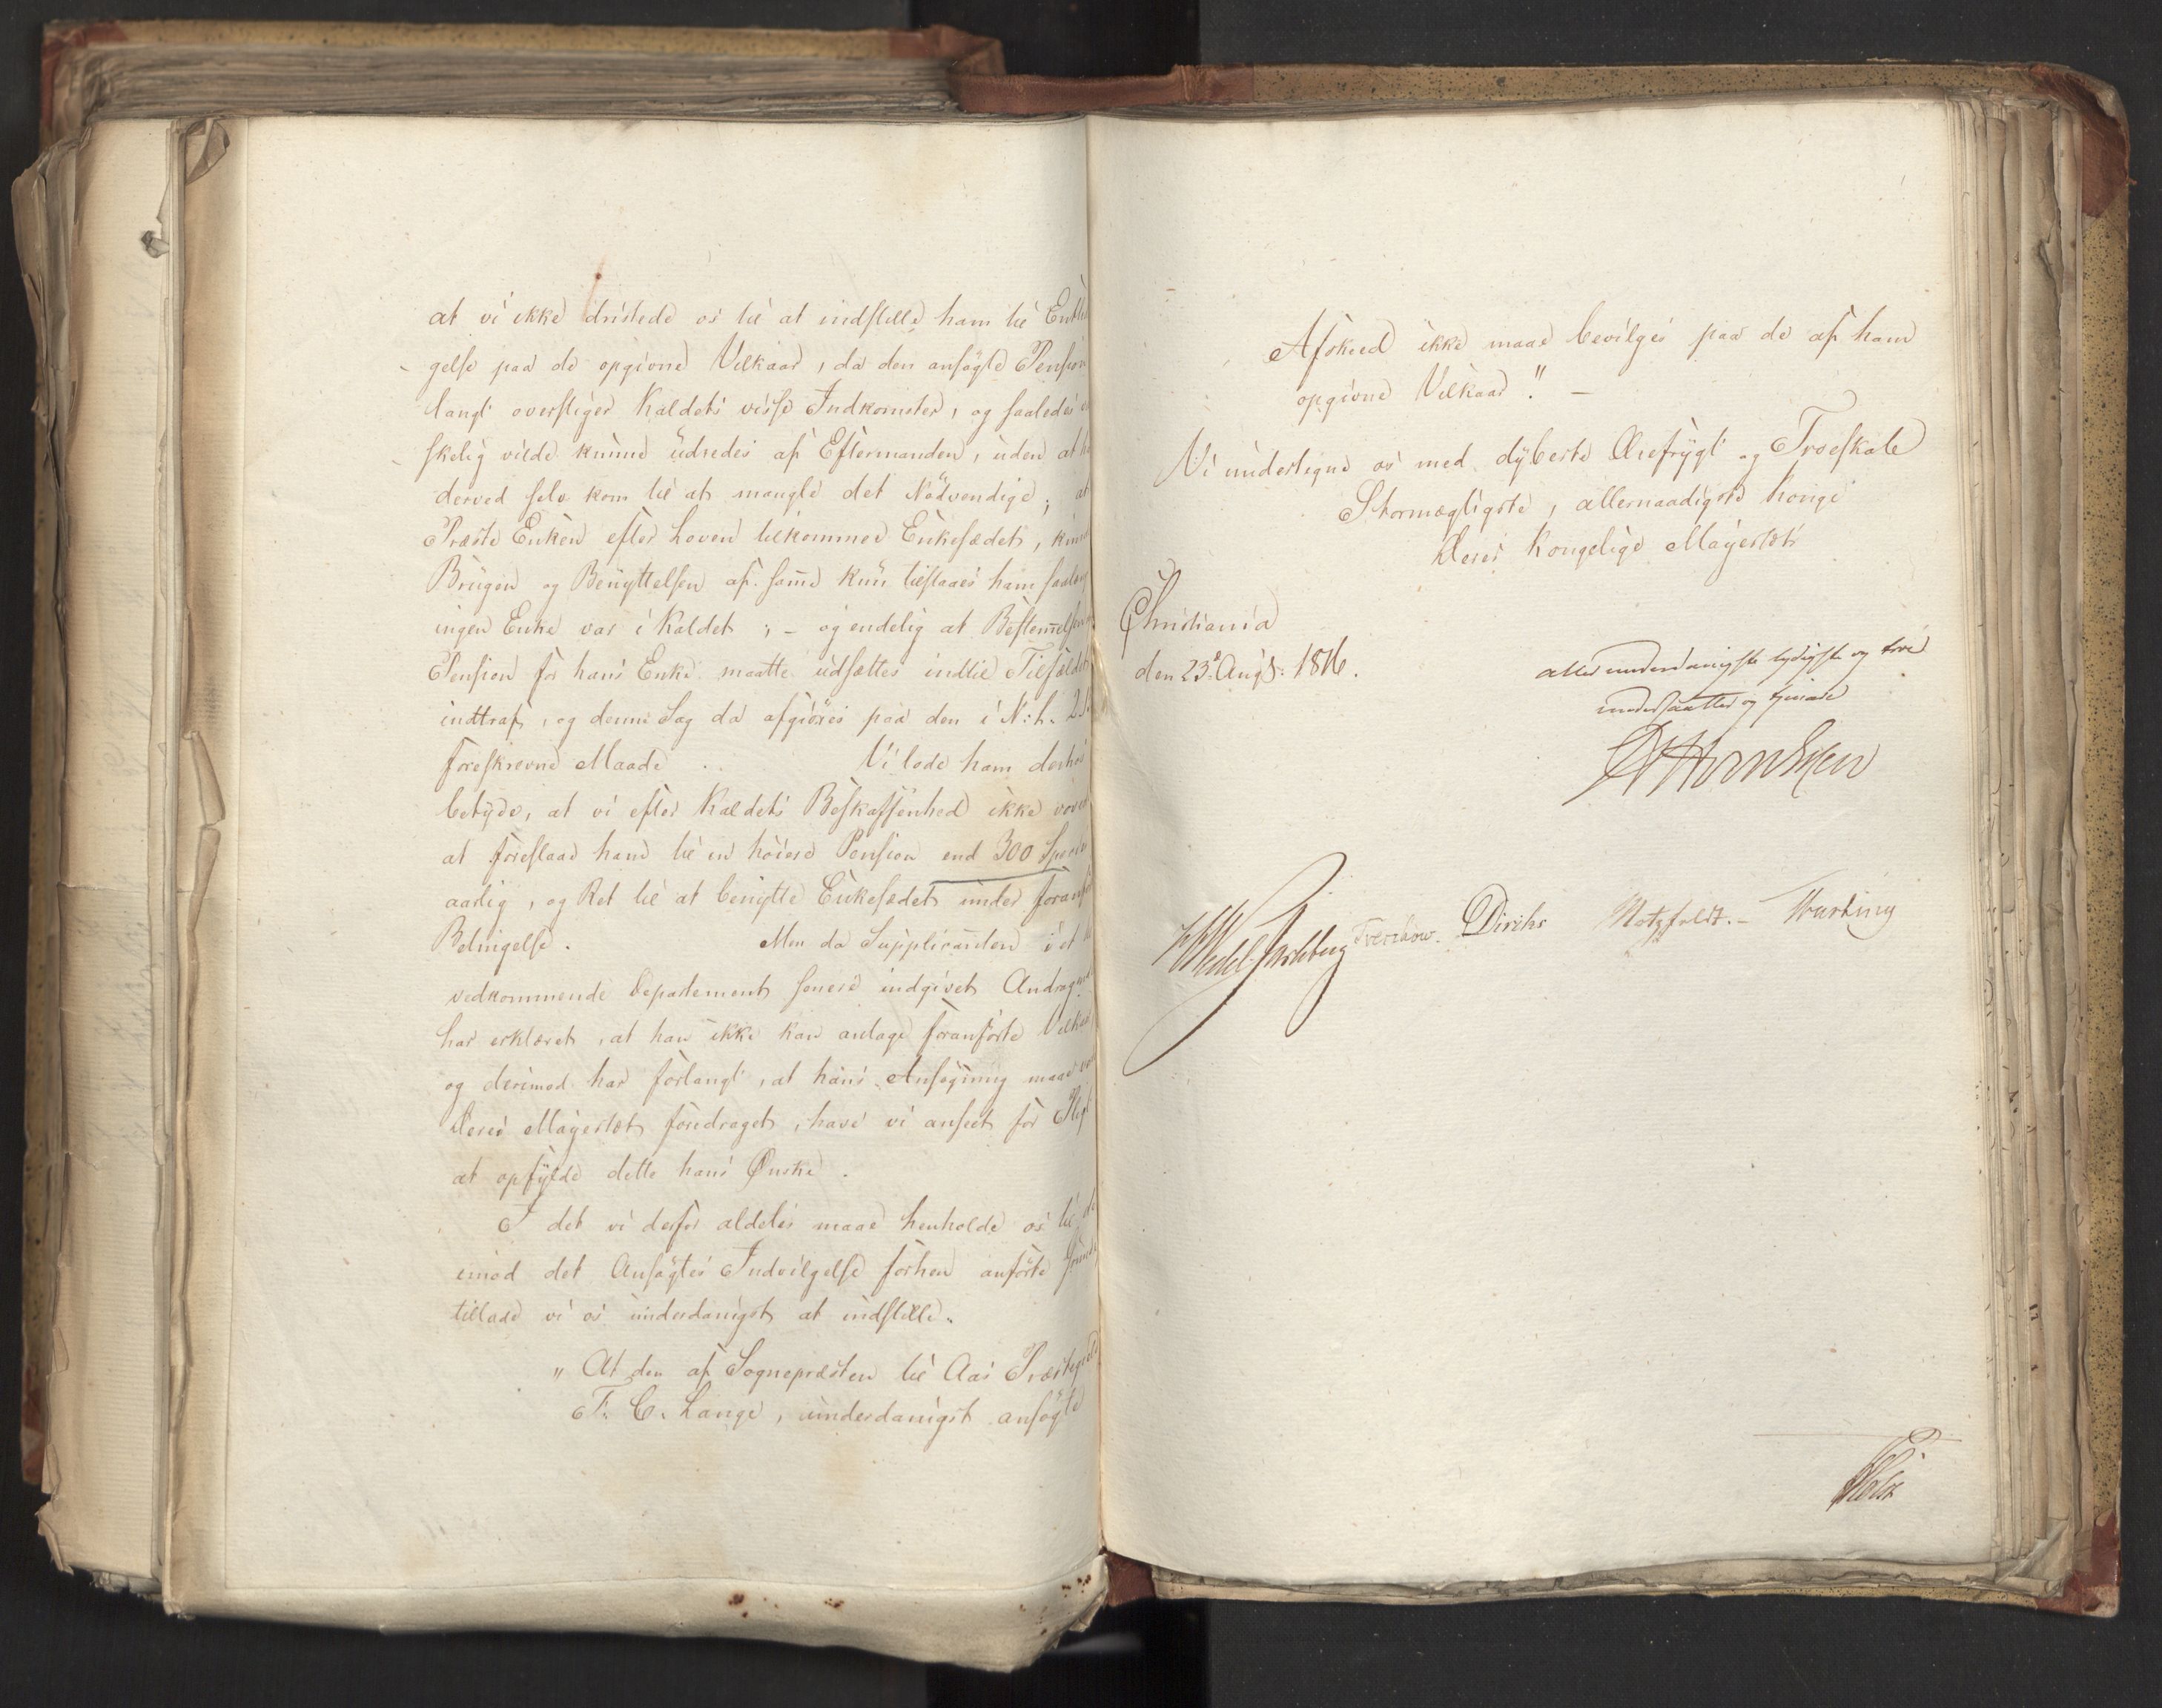 at vi ikke dristede os til at indstille ham til Entle
gelse paa de opgivne Vilkaar, da den ansøgte Pension
langt overstiger Kaldets visse Indkomster, og saaledes
skelig vilde kunne udredes af Eftermanden, uden at
derved selv kom til at mangle det Nödvendige; at
Præste Enken efter Loven tilkommer Enkesædet,
Brugen og Benyttelsen af sam̄e kun tilstaaes ham saalæng
ingen Enke var i Kaldet; – og endelig at Bestem̄elsen
Pension for hans Enke maatte udsættes indtil Tilfældet
indtraf, og denne Sag da afgiöres paa den i N: L. 2
foreskrevne Maade. Vi lode ham derhos
betyde, at vi efter Kaldets Beskaffenhed ikke vovede
at foreslaae ham til en höiere Pension end 300 Specie
aarlig, og Ret til at benytte Enkesædet under foranf
Betingelse. Men da Supplicanten i et
vedkommende Departement senere indgivet Andragende
har erklæret, at han ikke kan antage foranförte Vilkaar
og derimod har forlangt, at hans Ansögning maae
Deres Mayestæt foredraget, have vi anseet for Pligt
at opfylde dette hans Ønske.
I det vi derfor aldeles maae henholde os til de
imod det Ansögtes Indvilgelse forhen anförte
tillade vi os underdanigst at indstille.
"At den af Sognepræsten til Aas Præstegield
F. C. Lange, underdanigst ansøgte
Afskeed ikke maae bevilges paa de af ham
opgivne Vilkaar". –
Vi undertegne os med dybeste Ærefrygt og Troeskab
Stormægtigste, allernaadigste Konge
Deres Kongelige Mayestæts
Christiania
den 23de Augs: 1816.
allerunderdanigste lydigste og troe
undersaatter og tjenere
Wedel-Jarlsberg Treschow. Diriks Motzfeldt. –
Holst